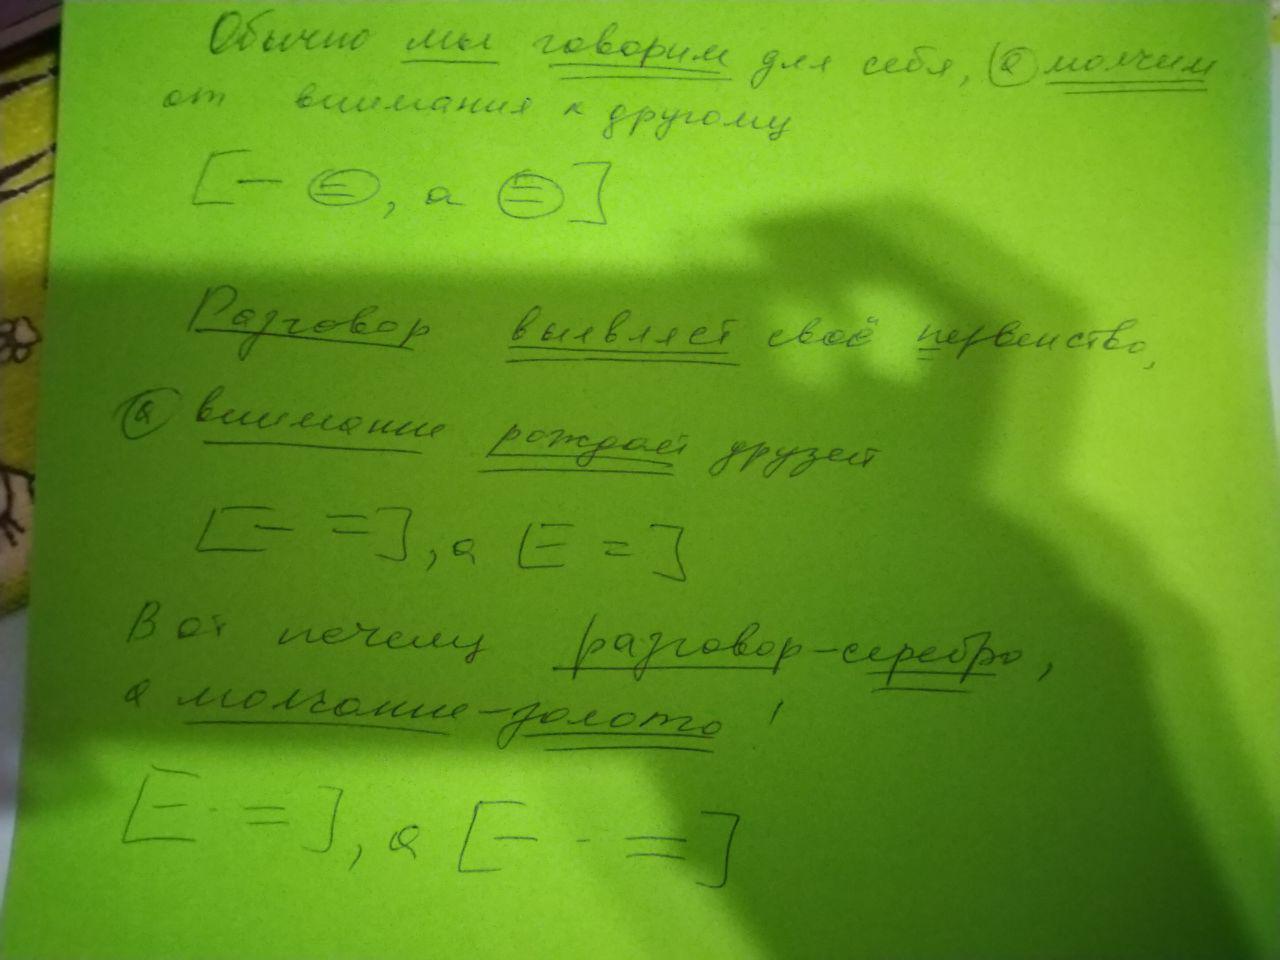 Обычно мы говорим для себя, а молчим
от внимания к другому
[— =, а =]
Разговор выявляет своё первенство,
а внимание рождает друзей
[— =], а [— =]
Вот почему разговор-серебро,
а молчание-золото!
[— - =], а [— - =]